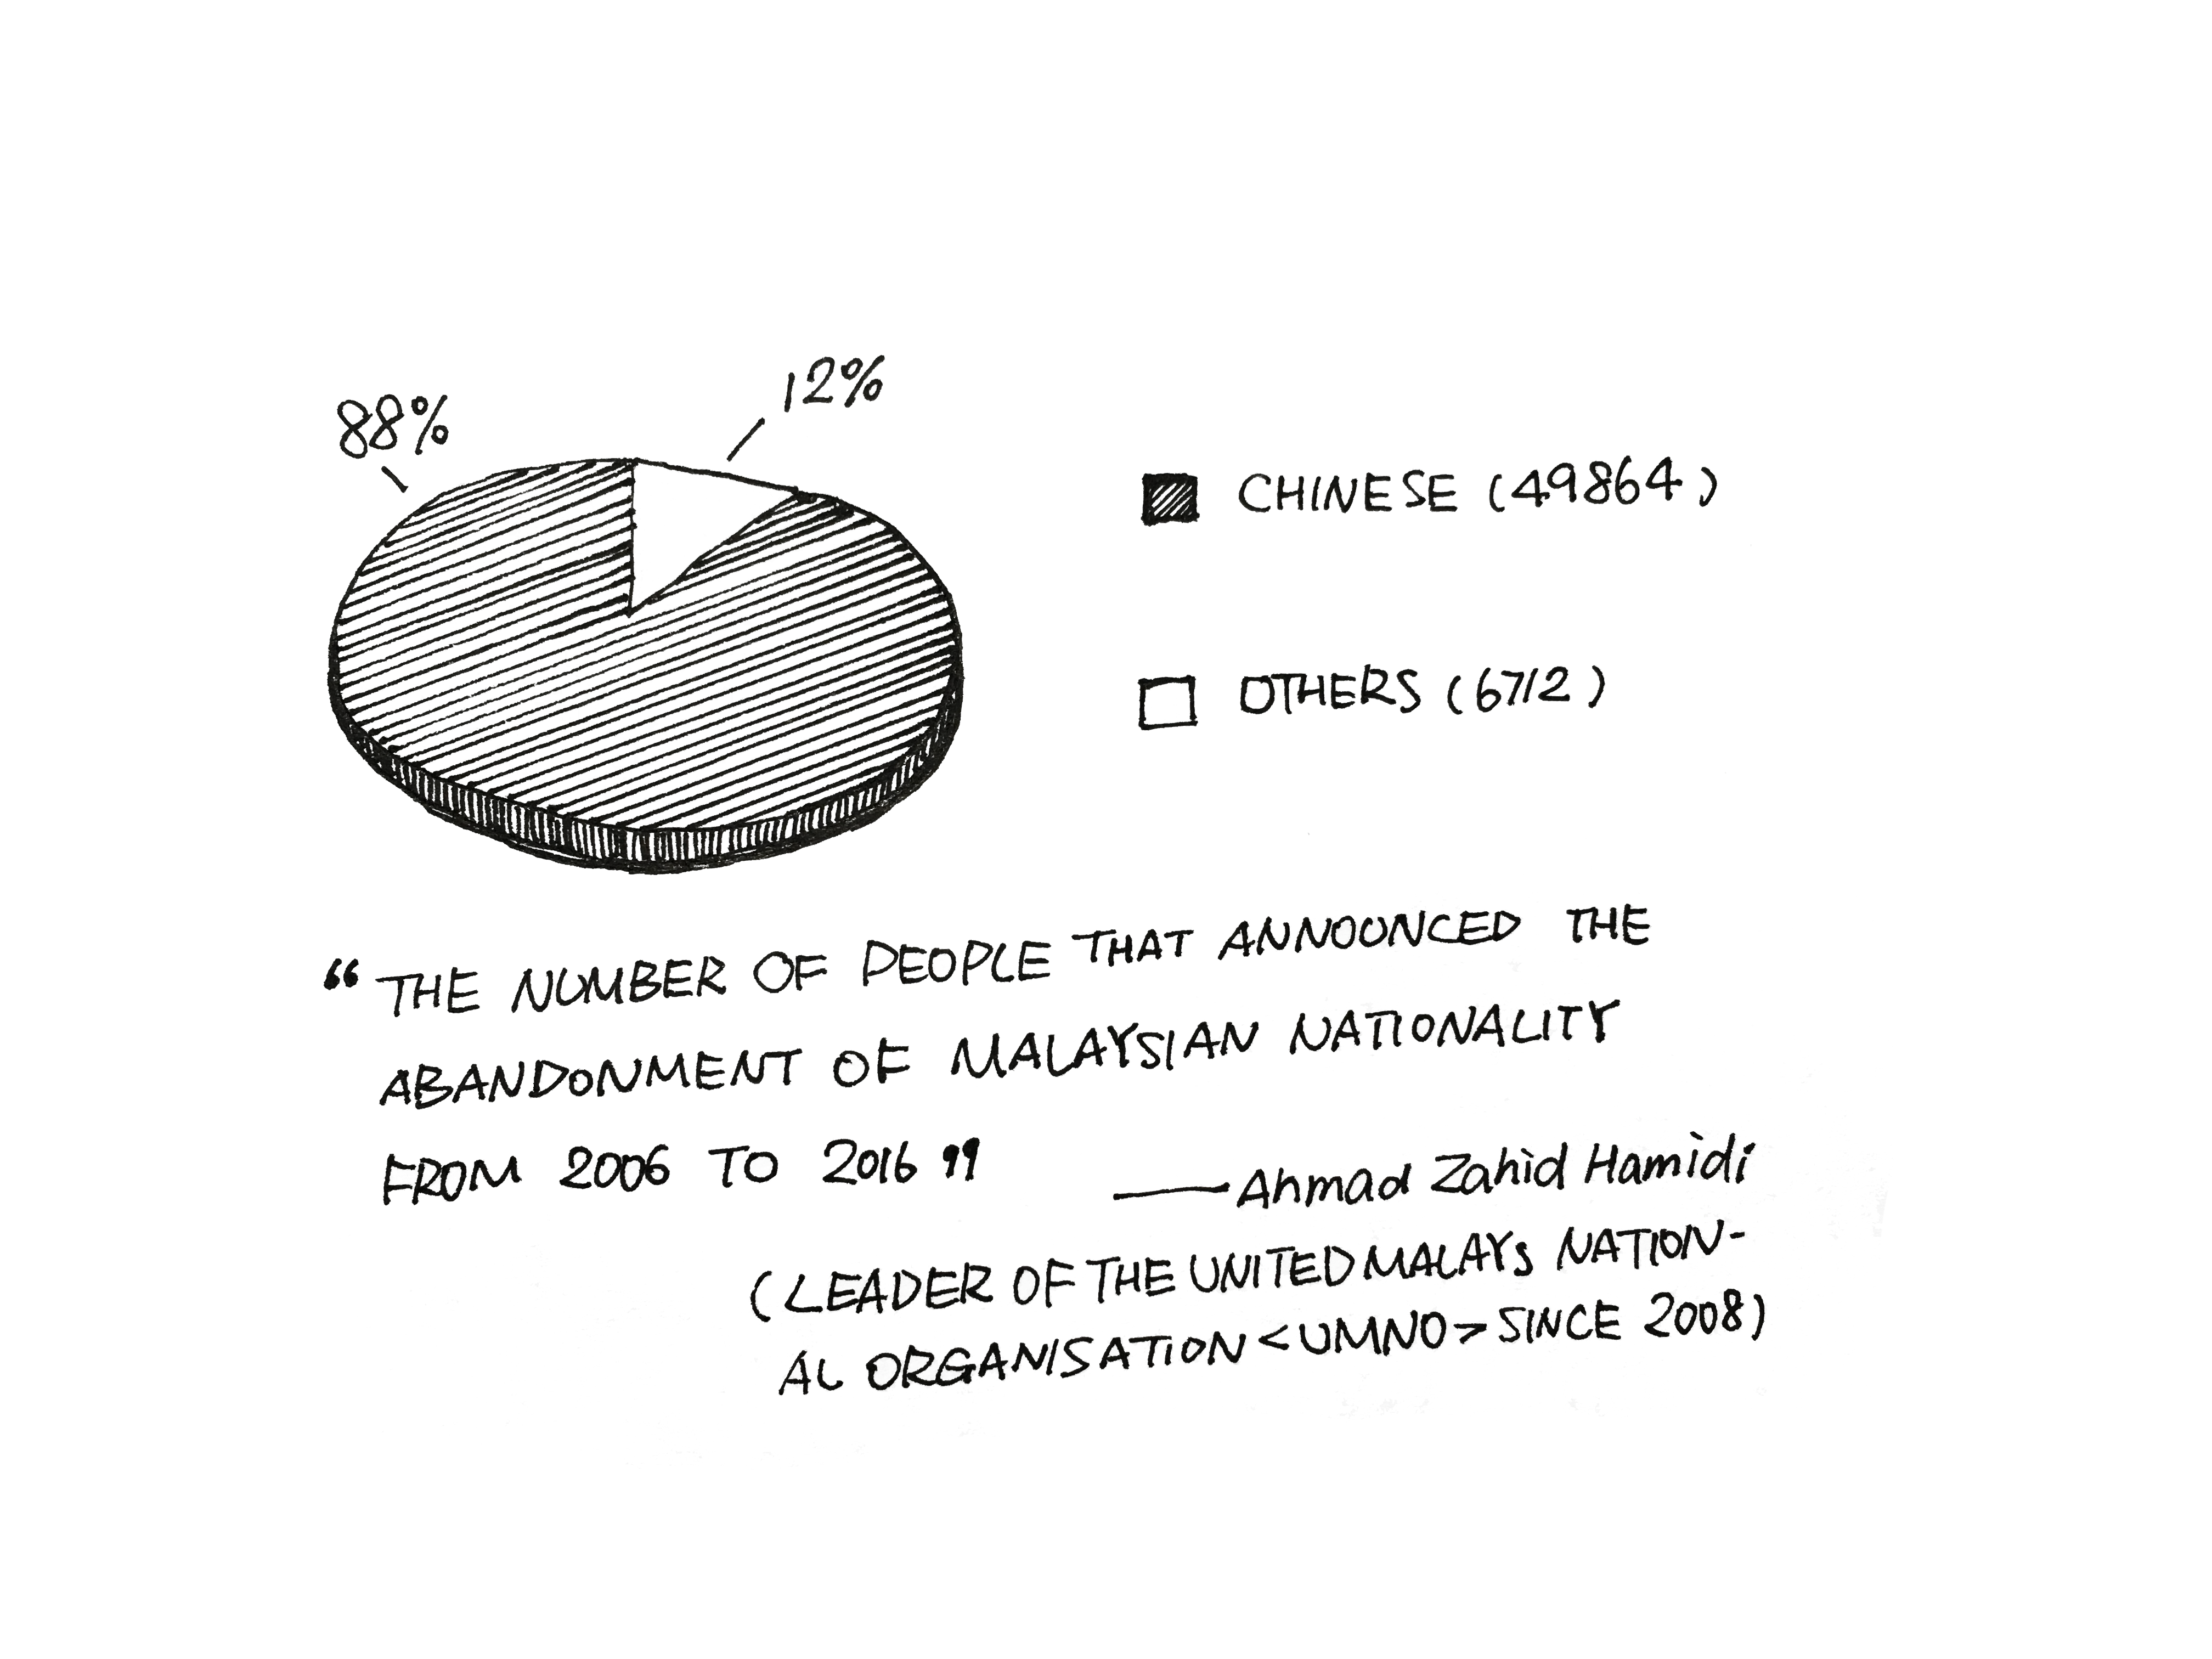 88%
12%
CHINESE (49864)
OTHERS (6712)
“THE NUMBER OF PEOPLE THAT ANNOUNCED THE
ABANDONMENT OF MALAYSIAN NATIONALITY
FROM 2006 TO 2016”
—Ahmad Zahid Hamidi
(LEADER OF THE UNITED MALAYS NATION-
AL ORGANISATION <UMNO> SINCE 2008)